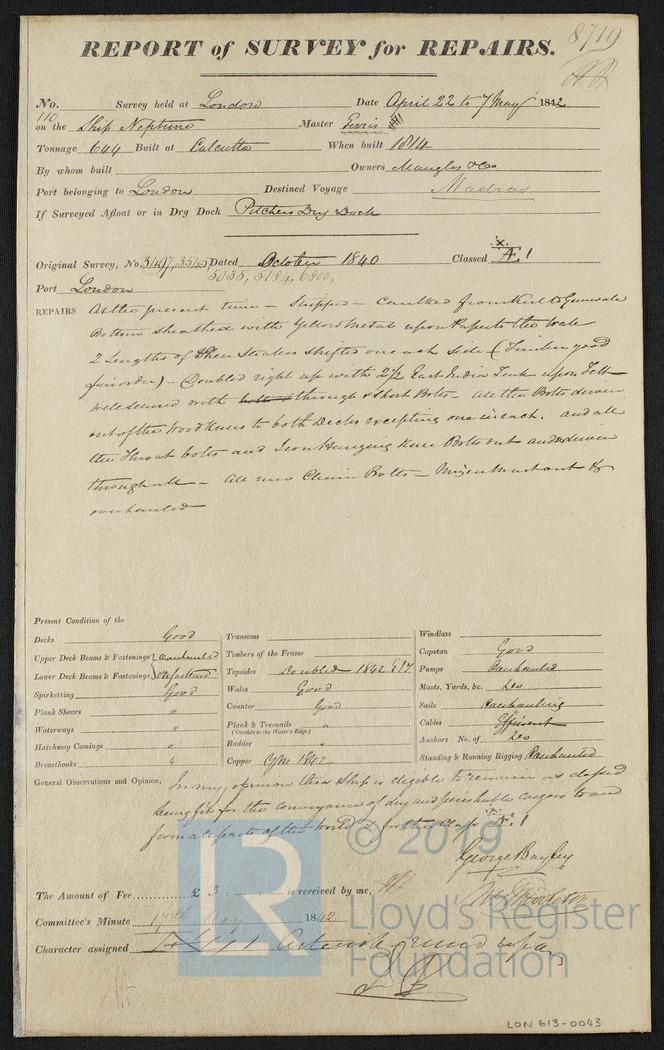 8719
REPORT of SURVEY for REPAIRS.
No. 110 Survey held at London Date April 22 to 7 May 1842
on the Ship Neptune Master Ferris
Tonnage 644 Built at Calcutta When built 1814
By whom built Owners Mangles & Co
Port belonging to London Destined Voyage Madras
If Surveyed Afloat or in Dry Dock Pitchers Dry Dock
Original Survey, No. 3497, 3545, Dated October 1840 Classed Æ 1
5035, 5184, 6800,
Port London
REPAIRS At the present time – Stripped – Caulked from Keel to Gunwale
Bottom sheathed with Yellow Metal upon Paper to the Wale
2 Lengths of Sheer Strakes shifted one each side (Timbers good
– Doubled right up with 2½ East India Teak upon Felt
well secured with through & Short Bolts – all the Bolts driven
out of the Wood Knees to both Decks excepting one in each. and all
the Throat bolts and Iron Hanging Knee Bolts out and driven
through all – all new Chain Bolts – Mizen Mast out &
overhauled
Present Condition of the
Decks Good
Upper Deck Beams & Fastenings Overhauled
Lower Deck Beams & Fastenings & Refastened
Spirketting Good
Plank Shears "
Waterways "
Hatchway Comings "
Breasthooks "
Transoms
Timbers of the Frame
Topsides Doubled 1842
Wales Good
Counter Good
Plank & Treenails "
(Outside to the Water's Edge)
Rudder "
Copper Y M 1842
Windlass
Capstan Good
Pumps Overhauled
Masts, Yards, &c. Do
Sails Overhauling
Cables Efficient
Anchors No. of Do
Standing & Running Rigging Overhauled
General Observations and Opinion, In my opinion this Ship is eligible to remain as classed
being fit for the conveyance of dry and perishable cargoes to and
from all parts of the World Æ 1
George Bayley
The Amount of Fee £ 3 : is received by me,
Committee's Minute 17th May 1842
Character assigned
© 2019
Lloyd's Register
Foundation
LR
LON 613-0043